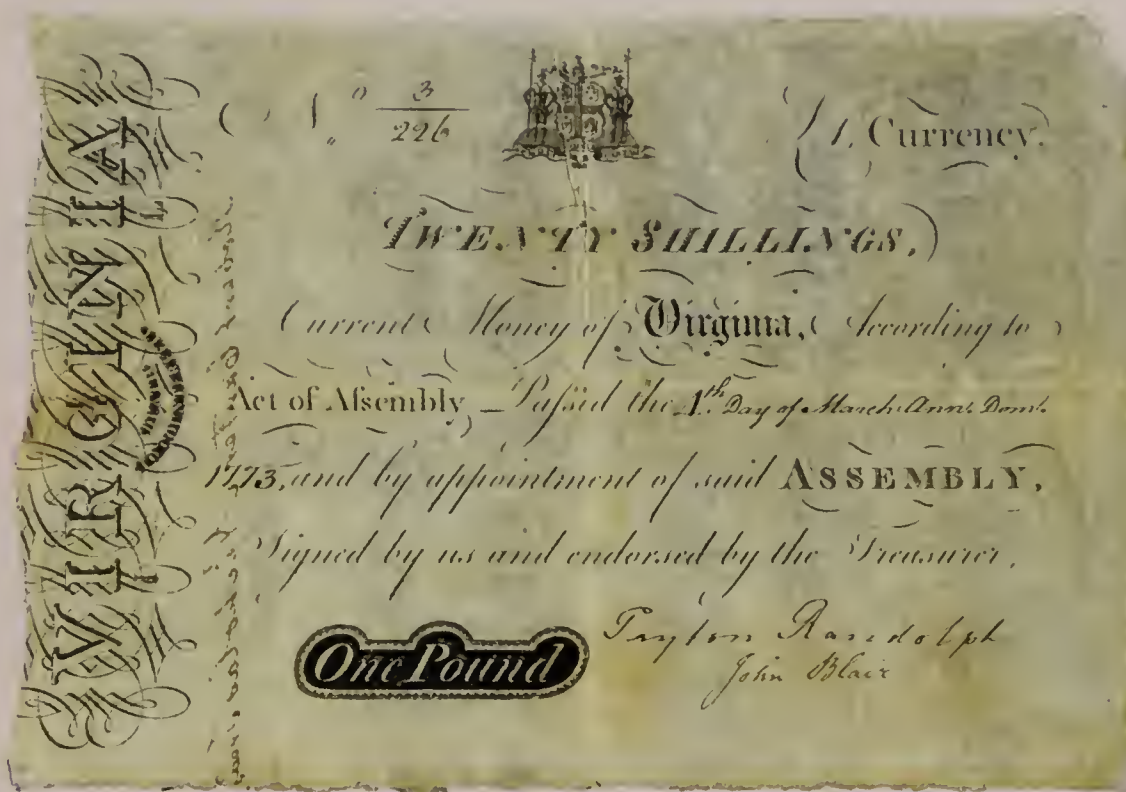 VIRGINIA
N.º 3
226
1. Currency.
TWENTY SHILLINGS,
Current Money of Virginia, According to
Act of Aſsembly, Paſsed the 4th. Day of March Ann: Dom:
1773, and by appointment of said ASSEMBLY,
Signed by us and endorsed by the Treasurer.
One Pound
Peyton Randolph
John Blair